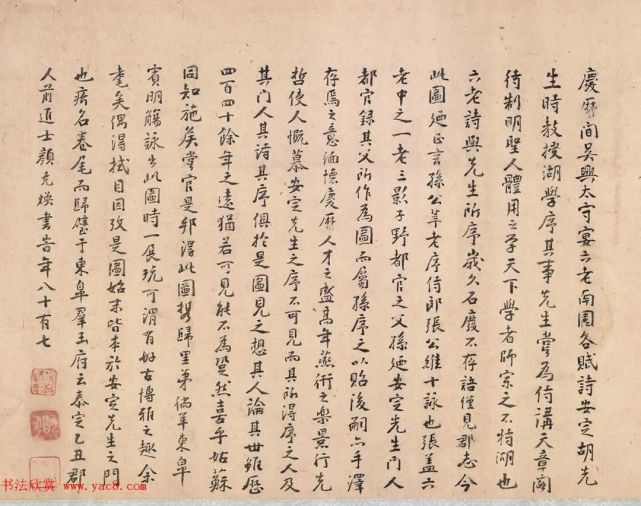 慶曆間吳興太守宴六老南園各賦詩安定胡先
生時教授湖學序其事先生嘗為侍講天章閣
待制明聖人體用之學天下學者師宗之不特湖也
六老詩與先生所序歲久石廢不存語僅見郡志今
此圖廼正言孫公莘老序侍郎張公維十詠也張蓋六
老中之一老三影子野都官之父孫廼安定先生門人
都官錄其父所作為圖而屬孫序之以貽後嗣六手澤
存焉之意緬懷慶曆人才之盛高年燕衎之樂景行先
哲使人慨慕安定先生之序不可見而其所得序之人及
其門人其詩其序俱於是圖見之想其人論其世雖歷
四百四十餘年之遠猶若可見能不為之躍然喜乎姑蘇
同知施矣當官是邦得此圖攜歸里第倘羊東皐
賓明觴詠出此圖時一展玩可謂有好古博雅之趣余
耄矣偶得拭目因攷是圖始末皆本於安定先生之門
也瘄名卷尾而歸璧于東皐羣玉府云泰定乙丑郡
人前進士顏堯煥書旹年八十有七
书法欣赏 www.yac8.com